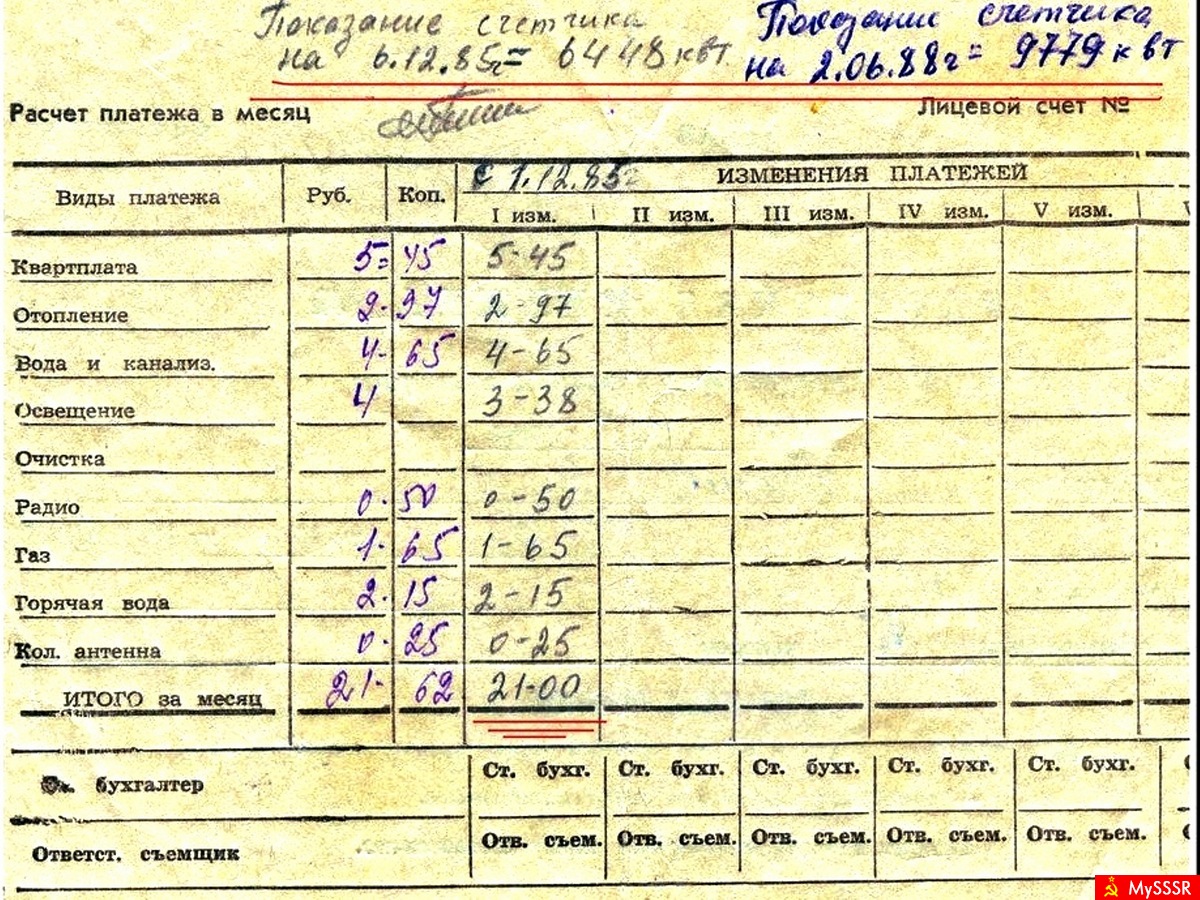 Показание счетчика
на 6.12.85г = 6448 квт
Показание счетчика
на 2.06.88г = 9779 квт
Расчет платежа в месяц
Лицевой счет №
Виды платежа Руб. Коп. с 1.12.85г ИЗМЕНЕНИЯ ПЛАТЕЖЕЙ
I изм. II изм. III изм. IV изм. V изм.
Квартплата 5= 45 5-45
Отопление 2- 97 2-97
Вода и канализ. 4- 65 4-65
Освещение 4 3-38
Очистка
Радио 0- 50 0-50
Газ 1- 65 1-65
Горячая вода 2- 15 2-15
Кол. антенна 0- 25 0-25
ИТОГО за месяц 21- 62 21-00
бухгалтер Ст. бухг. Ст. бухг. Ст. бухг. Ст. бухг. Ст. бухг.
Ответст. съемщик Отв. съем. Отв. съем. Отв. съем. Отв. съем. Отв. съем.
MySSSR